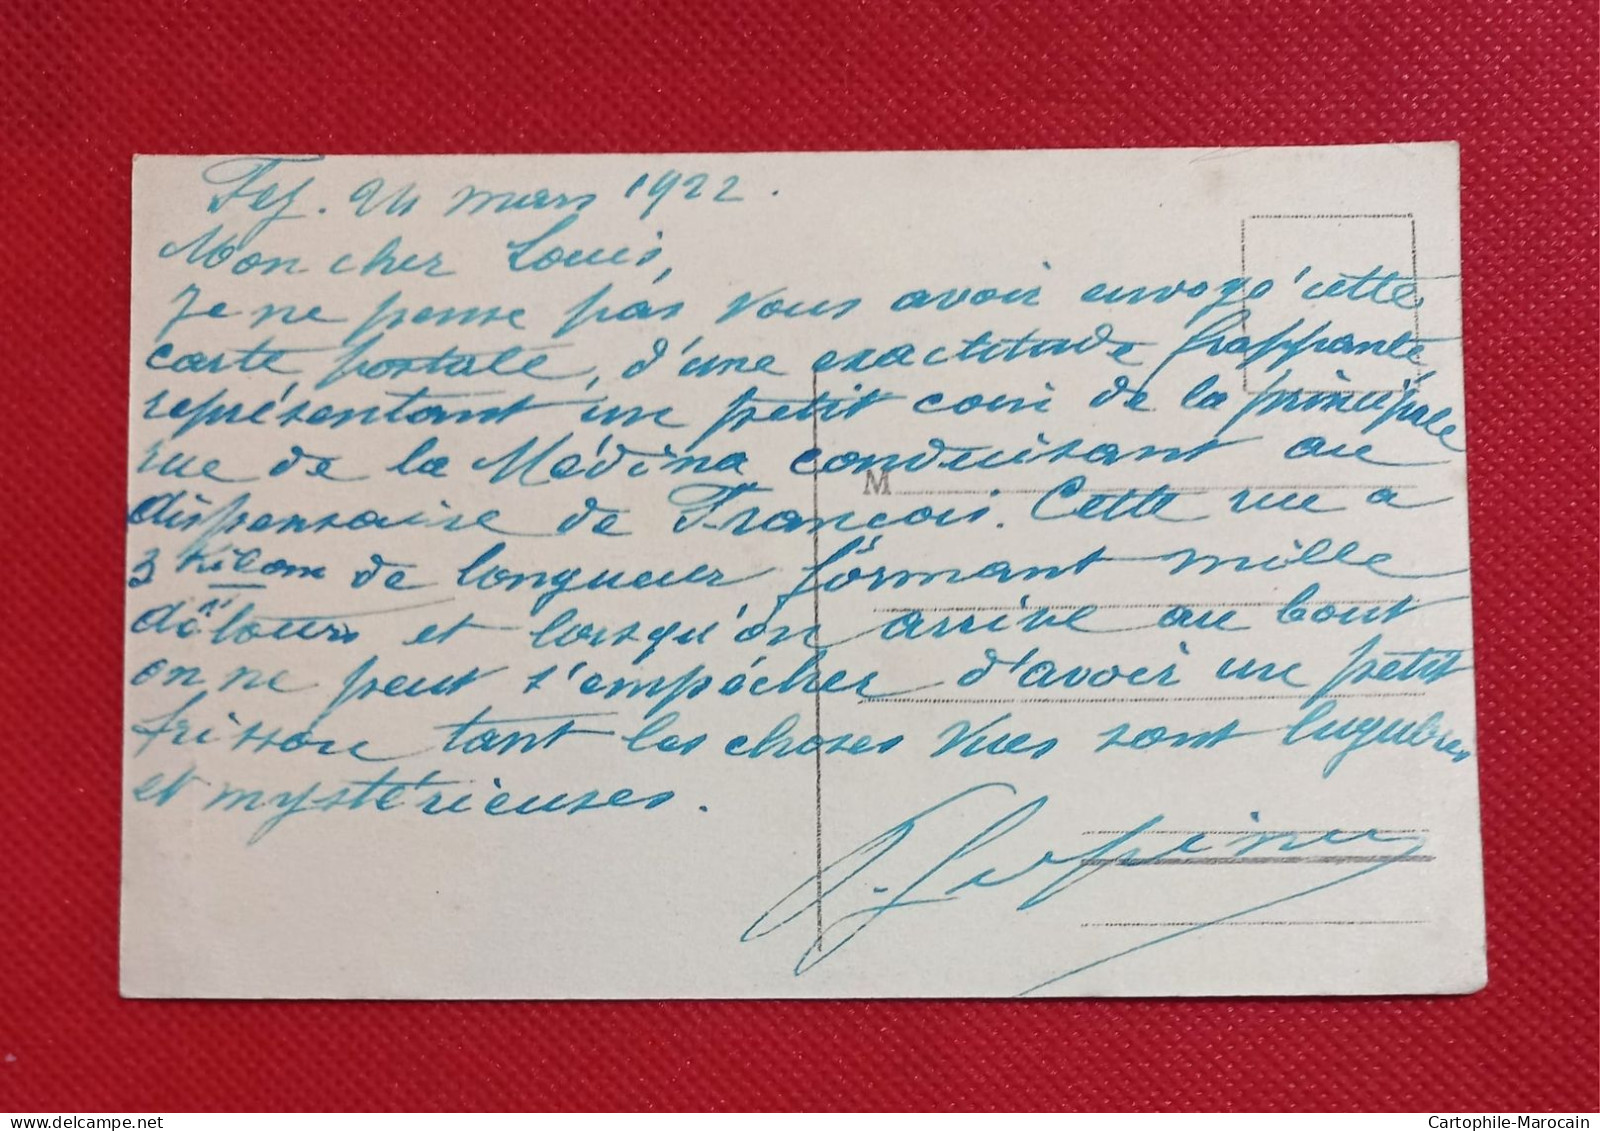 Fez. 24 mars 1922.
Mon cher Louis,
Je ne pense pas vous avoir envoyé cette
carte postale, d'une exactitude frappante
représentant un petit coin de la principale
rue de la Médina conduisant au
dispensaire de François. Cette rue a
3 kilom de longueur formant mille
détours et lorsqu'on arrive au bout
on ne peut s'empêcher d'avoir un petit
frisson tant les choses vues sont lugubres
et mystérieuses.
M
Cartophile-Marocain